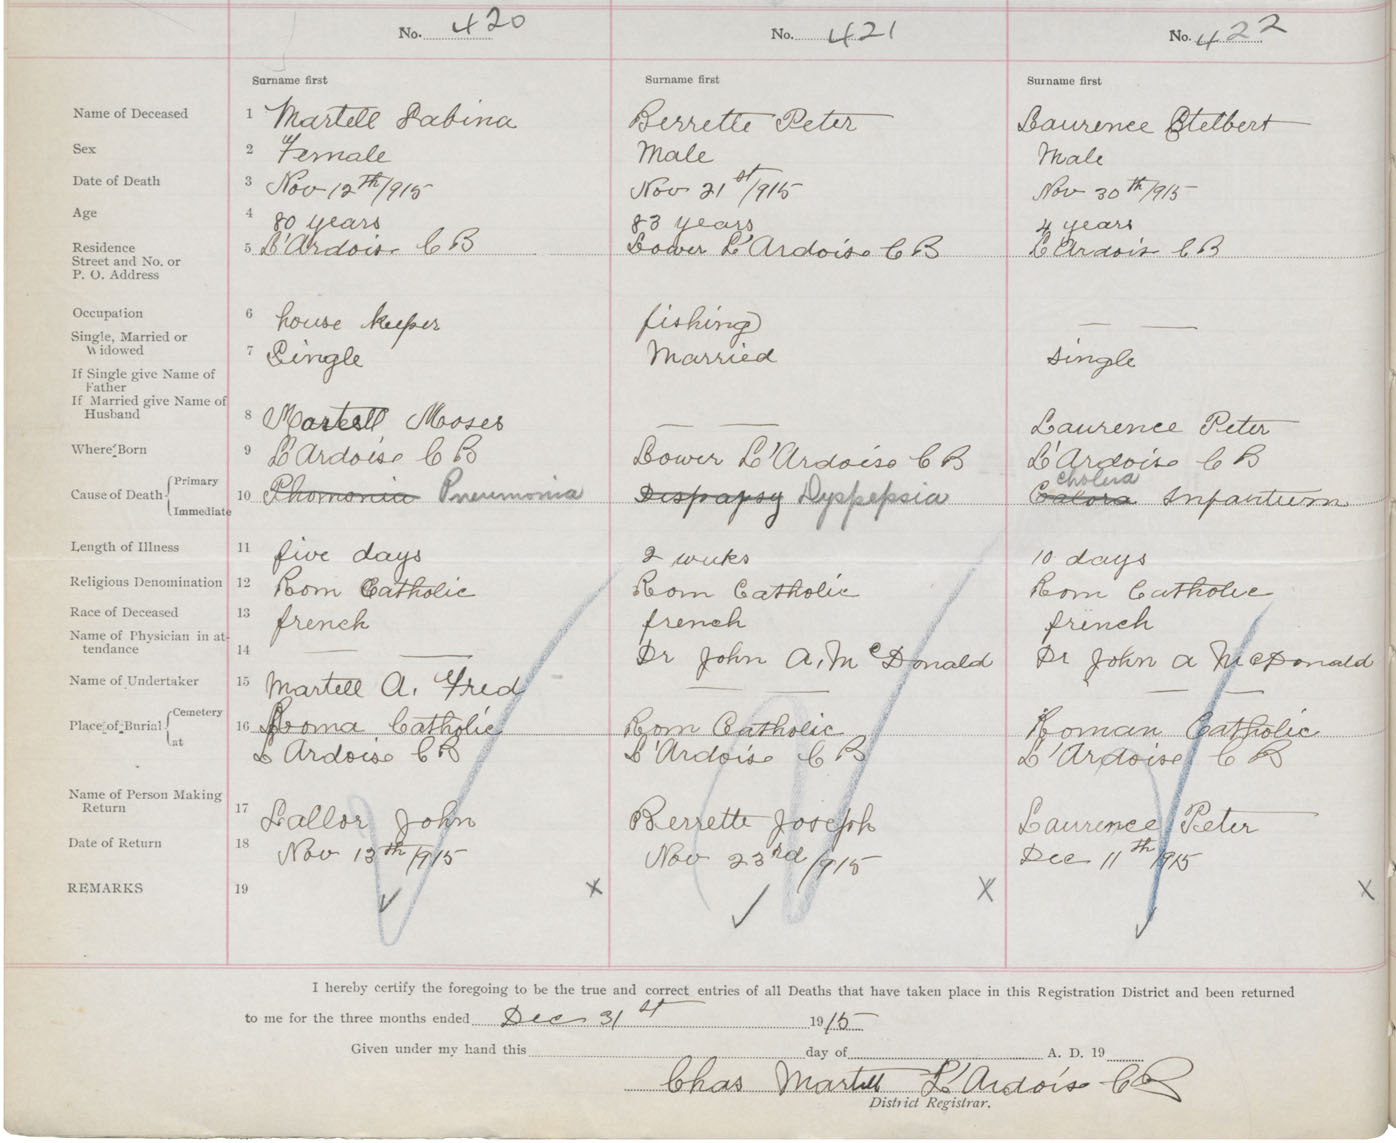 No. 420 No. 421 No. 422
Surname first Surname first Surname first
Name of Deceased 1 Martell Sabina Berrette Peter Laurence Etelbert
Sex 2 Female Male Male
Date of Death 3 Nov 12th/915 Nov 21st/915 Nov 30th/915
Age 4 80 years 83 years 4 years
Residence
Street and No. or
P. O. Address 5 L'Ardoise C B Lower L'Ardoise C B L'Ardois C B
Occupation 6 house keeper fishing — —
Single, Married or
Widowed 7 Single Married single
If Single give Name of
Father
If Married give Name of
Husband 8 Martell Moses — — Laurence Peter
Where Born 9 L'Ardoise C B Lower L'Ardoise C B L'Ardoise C B
cholera
Cause of Death Primary Immediate 10 Phomonia Pneumonia Dispapsy Dyspepsia Calora Infantium
Length of Illness 11 five days 2 weeks 10 days
Religious Denomination 12 Rom Catholic Rom Catholic Rom Catholic
Race of Deceased 13 french french french
Name of Physician in at-
tendance 14 — — Dr John A. McDonald Dr John A McDonald
Name of Undertaker 15 Martell A. Fred — — — —
Place of Burial Cemetery 16 Roma Catholic Rom Catholic Roman Catholic
at L'Ardoise C B L'Ardoise C B L'Ardoise C B
Name of Person Making
Return 17 Lallor John Berrette Joseph Laurence Peter
Date of Return 18 Nov 13th/915 Nov 23rd/915 Dec 11th 1915
REMARKS 19 x X x
I hereby certify the foregoing to be the true and correct entries of all Deaths that have taken place in this Registration District and been returned
to me for the three months ended Dec 31st 1915
Given under my hand this day of A. D. 19
Chas Martell L'Ardoise C B
District Registrar.